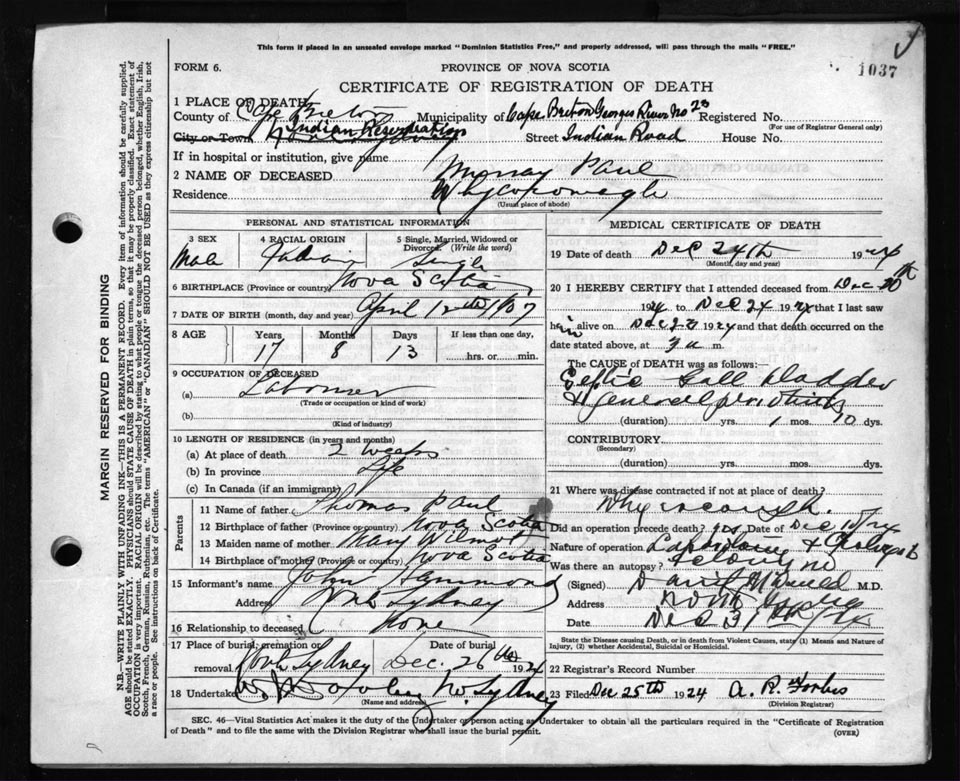 This form if placed in an unsealed envelope marked "Dominion Statistics Free," and properly addressed, will pass through the mails "FREE."
1037
FORM 6.
PROVINCE OF NOVA SCOTIA
CERTIFICATE OF REGISTRATION OF DEATH
1 PLACE OF DEATH
County of Cape Breton Municipality of Cape Breton Georges River No 23 Registered No.
(For use of Registrar General only)
City or Town Indian Reservation Street Indian Road House No.
If in hospital or institution, give name
2 NAME OF DECEASED Murray Paul
Residence Whycocomagh
(Usual place of abode)
PERSONAL AND STATISTICAL INFORMATION
3 SEX 4 RACIAL ORIGIN 5 Single, Married, Widowed or Divorced (Write the word)
Male Indian Single
6 BIRTHPLACE (Province or country) Nova Scotia
7 DATE OF BIRTH (month, day and year) April 1907
8 AGE Years Months Days If less than one day,
17 8 13 hrs. or min.
9 OCCUPATION OF DECEASED
(a) Labourer
(Trade or occupation or kind of work)
(b)
(Kind of industry)
10 LENGTH OF RESIDENCE (in years and months)
(a) At place of death 2 weeks
(b) In province Life
(c) In Canada (if an immigrant)
Parents
11 Name of father Thomas Paul
12 Birthplace of father (Province or country) Nova Scotia
13 Maiden name of mother Mary Wilmot
14 Birthplace of mother (Province or country) Nova Scotia
15 Informant's name John Hammond
Address Sydney
16 Relationship to deceased None
17 Place of burial, cremation or Date of burial
removal North Sydney Dec. 26th 1924
18 Undertaker No. Sydney
(Name and address)
MEDICAL CERTIFICATE OF DEATH
19 Date of death Dec 24th 1924
(Month, day and year)
20 I HEREBY CERTIFY that I attended deceased from Dec
1924 to Dec 24 1924 that I last saw
him alive on Dec 1924 and that death occurred on the
date stated above, at 3 a m.
The CAUSE OF DEATH was as follows:—
Septic Gall bladder
& general peritonitis
(duration) yrs. 1 mos. 10 dys.
CONTRIBUTORY
(Secondary)
(duration) yrs. mos. dys.
21 Where was disease contracted if not at place of death?
Whycocomagh.
Did an operation precede death? yes Date of Dec
Nature of operation
Was there an autopsy? no
(Signed) M.D.
Address North Sydney
Date Dec
State the Disease causing Death, or in death from Violent Causes, state (1) Means and Nature of
Injury, (2) whether Accidental, Suicidal or Homicidal.
22 Registrars Record Number
23 Filed Dec 25th 1924 A. R. Forbes
(Division Registrar)
SEC. 46—Vital Statistics Act makes it the duty of the Undertaker or person acting as Undertaker to obtain all the particulars required in the "Certificate of Registration
of Death" and to file the same with the Division Registrar who shall issue the burial permit.
(OVER)
MARGIN RESERVED FOR BINDING
N.B.—WRITE PLAINLY WITH UNFADING INK—THIS IS A PERMANENT RECORD. Every item of information should be carefully supplied.
AGE should be stated EXACTLY. PHYSICIANS should STATE CAUSE OF DEATH in plain terms, so that it may be properly classified. Exact statement of
OCCUPATION is very important. RACIAL ORIGIN will be described by stating to what people or tongue the deceased person belonged, whether English, Irish,
Scotch, French, German, Russian, Ruthenian, etc. The terms "AMERICAN" or "CANADIAN" SHOULD NOT BE USED as they express citizenship but not
a race or people. See instructions on back of Certificate.